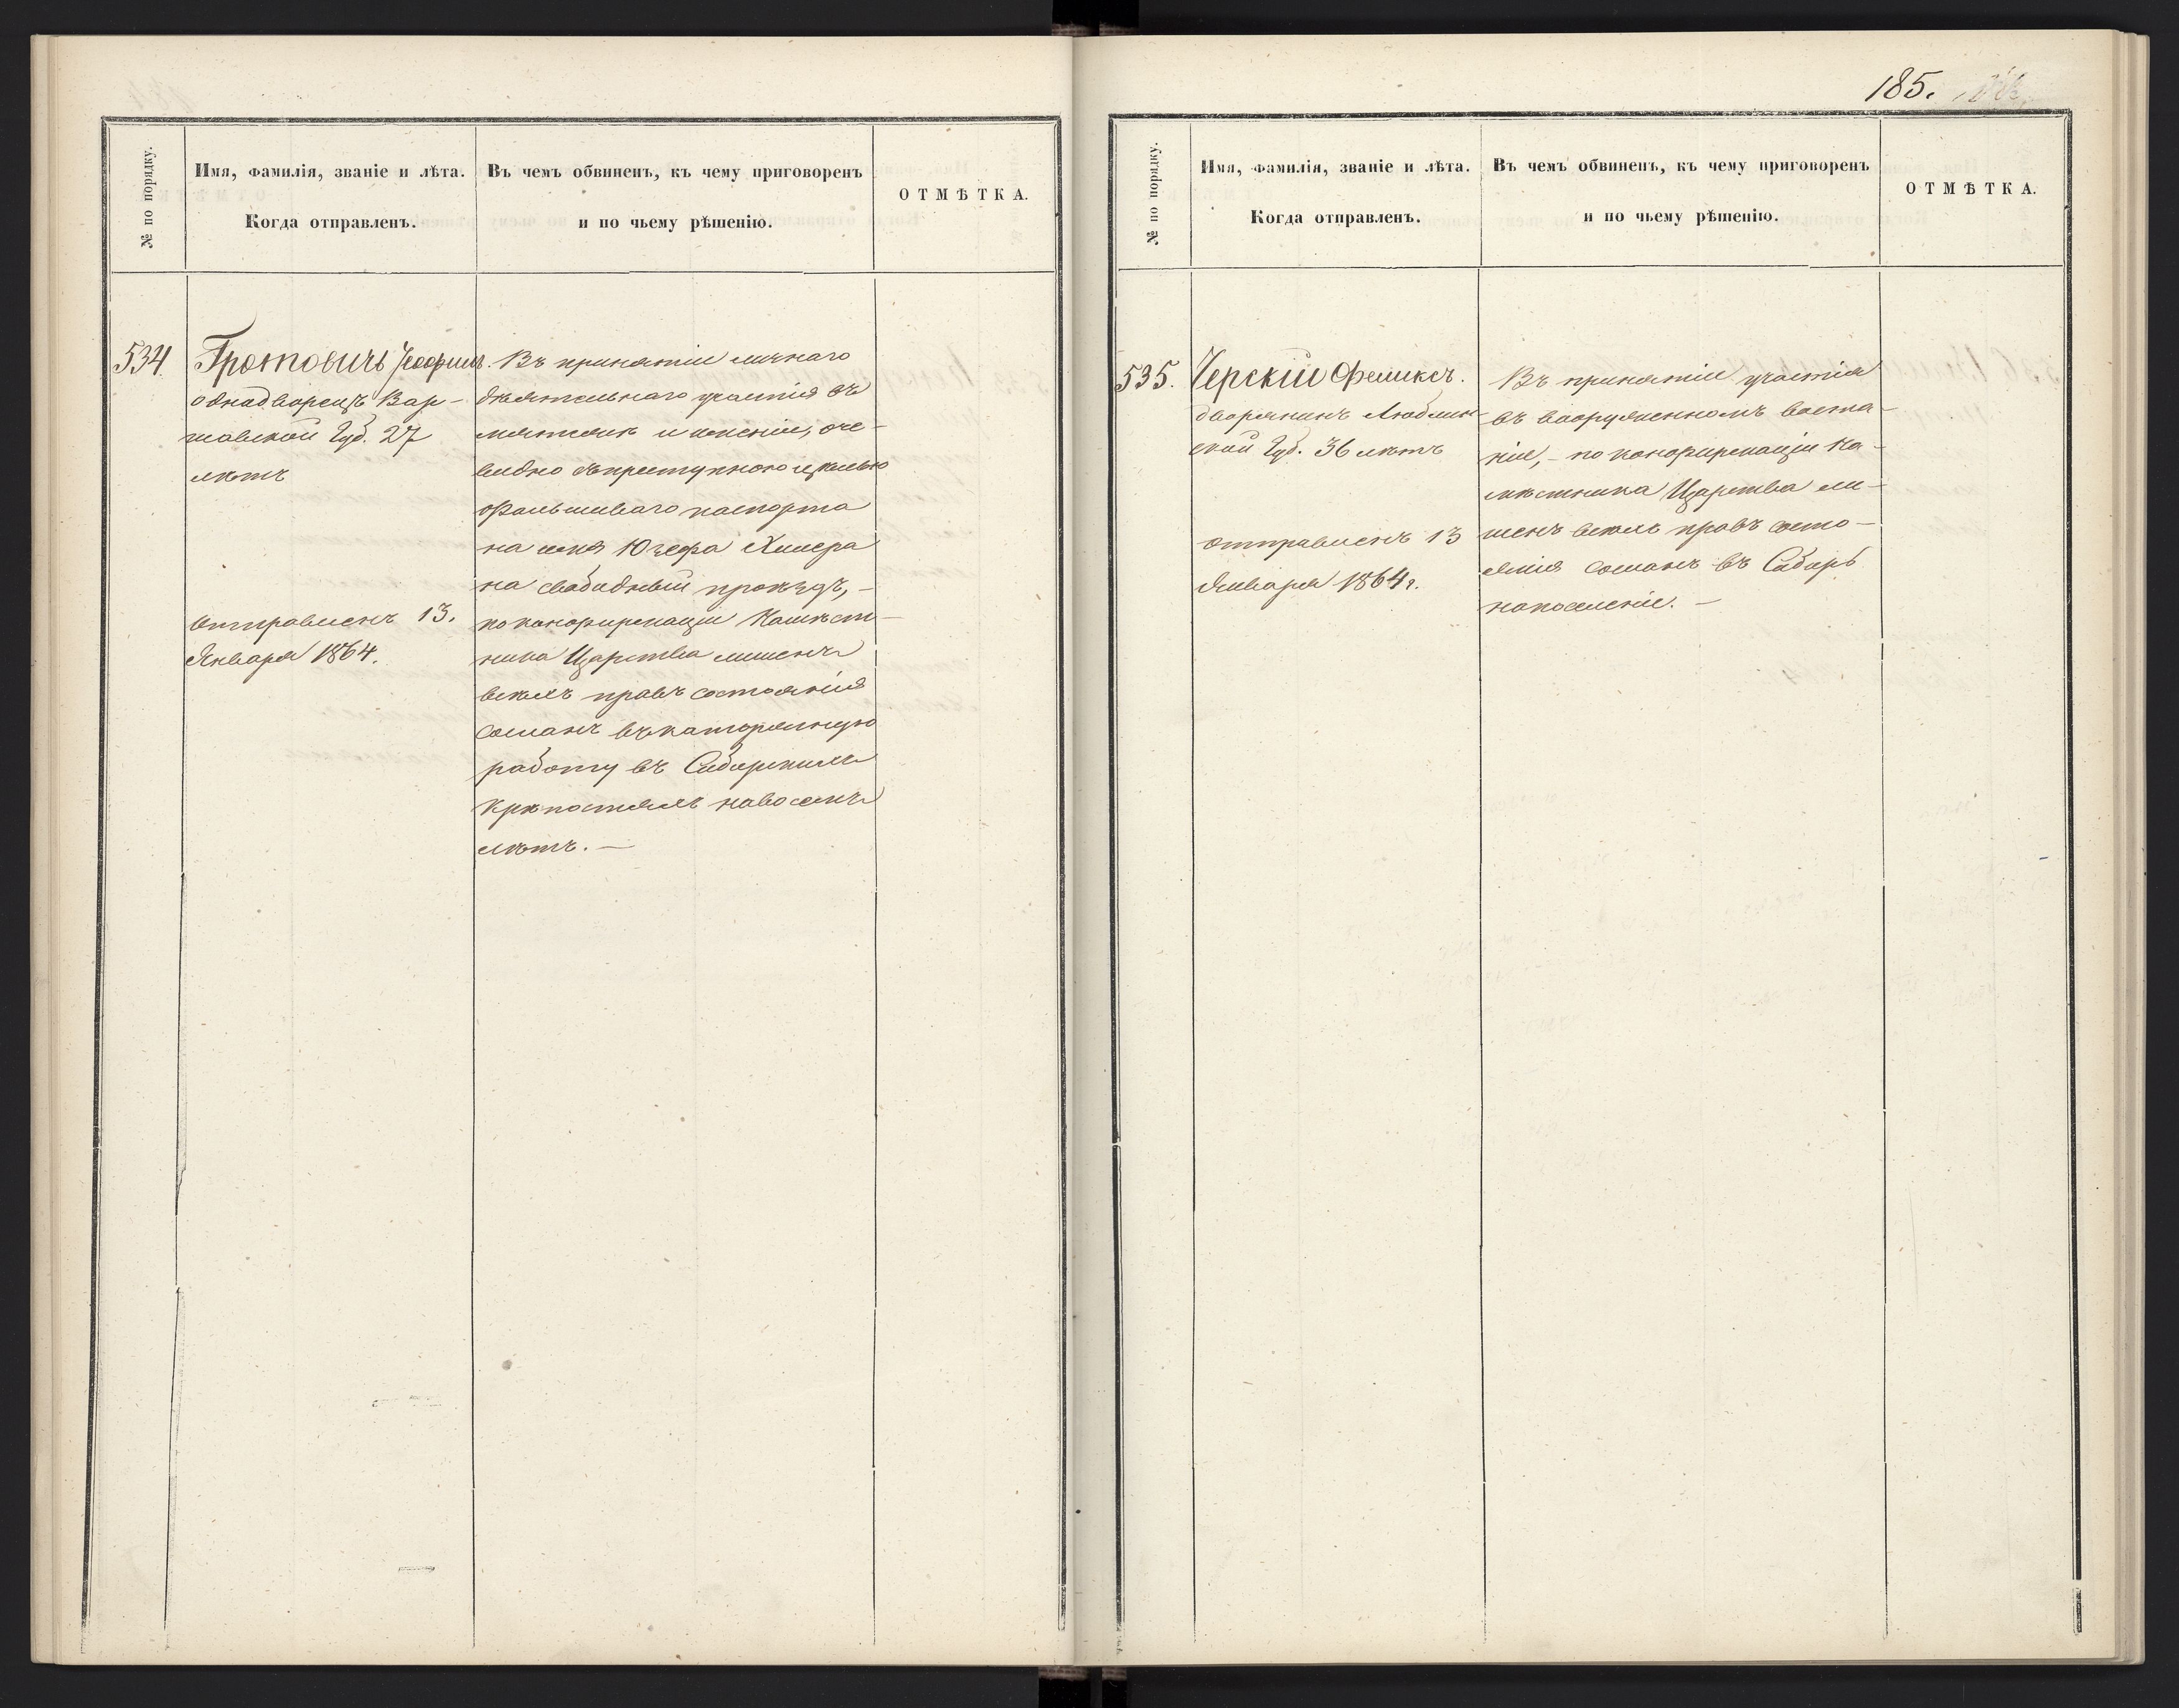 № по порядку.
Имя, фамилія, званіе и лѣта.
Когда отправленъ.
Въ чемъ обвиненъ, къ чему приговоренъ
и по чьему рѣшенію.
ОТМѢТКА.
534
Гротовичъ Теофилъ.
однодворецъ Вар-
шавской Губ. 27
лѣтъ
отправленъ 13.
Января 1864.
Въ принятіи личнаго
дѣятельнаго участія въ
мятежѣ и имѣніи, оче-
видно съ преступною цѣлью
фальшиваго паспорта
на имя Юзефа
на свободный проѣздъ, -
по конфирмаціи Намѣст-
ника Царства лишенъ
всѣхъ правъ состоянія
сосланъ въ каторжную
работу въ Сибирскихъ
крѣпостяхъ на восемь
лѣтъ. —
185.
№ по порядку.
Имя, фамилія, званіе и лѣта.
Когда отправленъ.
Въ чемъ обвиненъ, къ чему приговоренъ
и по чьему рѣшенію.
ОТМѢТКА.
535.
Черскій Феликсъ.
дворянинъ Люблин-
ской Губ. 36 лѣтъ
отправленъ 13
Января 1864 г.
Въ принятіи участія
въ вооруженномъ воста-
ніи, - по конфирмаціи На-
мѣстника Царства ли-
шенъ всѣхъ правъ состо-
янія сосланъ въ Сибирь
на поселеніе. —